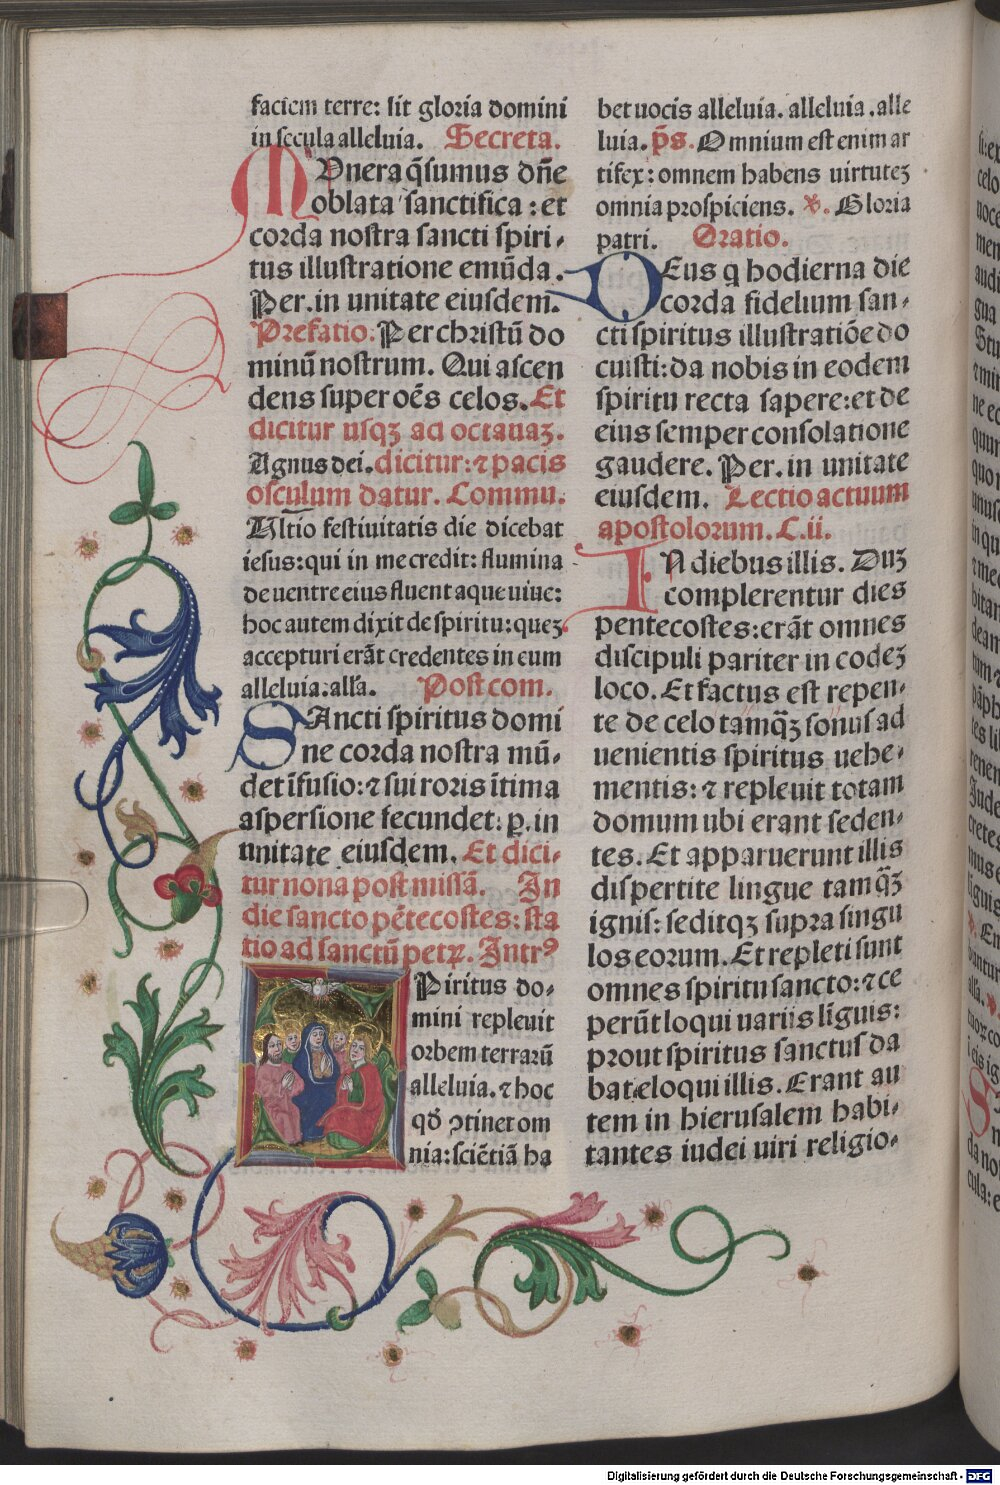 faciem terre: sit gloria domini
in secula alleluia. Secreta.
MUnera q̃sumus dñe
oblata sanctifica : et
corda nostra sancti spiri‐
tus illustratione emũda.
Per. in unitate eiusdem.
Prefatio. Per christũ do
minũ nostrum. Qui ascen
dens super oẽs celos. Et
dicitur usqꝫ ad octauaꝫ.
Agnus dei. dicitur: ⁊ pacis
osculum datur. Commu.
Ultĩo festiuitatis die dicebat
iesus: qui in me credit: flumina
de uentre eius fluent aque uiue:
hoc autem dixit de spiritu: queꝫ
accepturi erãt credentes in eum
alleluia. alľa. Postcom.
SAncti spiritus domi
ne corda nostra mũ‐
det ĩfusio: ⁊ sui roris ĩtima
aspersione fecundet: ꝑ. in
unitate eiusdem. Et dici‐
tur nona post missã. In
die sancto pẽtecostes: sta
tio ad sanctũ petꝝ. Intrꝰ
SPiritus do‐
mini repleuit
orbem terrarũ
alleluia. ⁊ hoc
qđ ꝯtinet om
nia: sciẽtiã ha
bet uocis alleluia. alleluia. alle
luia. p̃s. Omnium est enim ar
tifex: omnem habens uirtuteꝫ
omnia prospiciens. ℣. Gloria
patri. Oratio.
DEus q hodierna die
corda fidelium san‐
cti spiritus illustratiõe do
cuisti: da nobis in eodem
spiritu recta sapere: et de
eius semper consolatione
gaudere. Per. in unitate
eiusdem. Lectio actuum
apostolorum. C. ii.
IN diebus illis. Duꝫ
complerentur dies
pentecostes: erãt omnes
discipuli pariter in eodeꝫ
loco. Et factus est repen‐
te de celo tamq̃ꝫ sonus ad
uenientis spiritus uehe‐
mentis: ⁊ repleuit totam
domum ubi erant seden‐
tes. Et apparuerunt illis
dispertite lingue tamq̃ꝫ
ignis: seditqꝫ supra singu
los eorum. Et repleti sunt
omnes spiritu sancto: ⁊ ce
perũt loqui uariis lĩguis:
prout spiritus sanctus da
bat eloqui illis. Erant au
tem in hierusalem habi‐
tantes iudei uiri religio‐
Digitalisierung gefördert durch die Deutsche Forschungsgemeinschaft - DFG